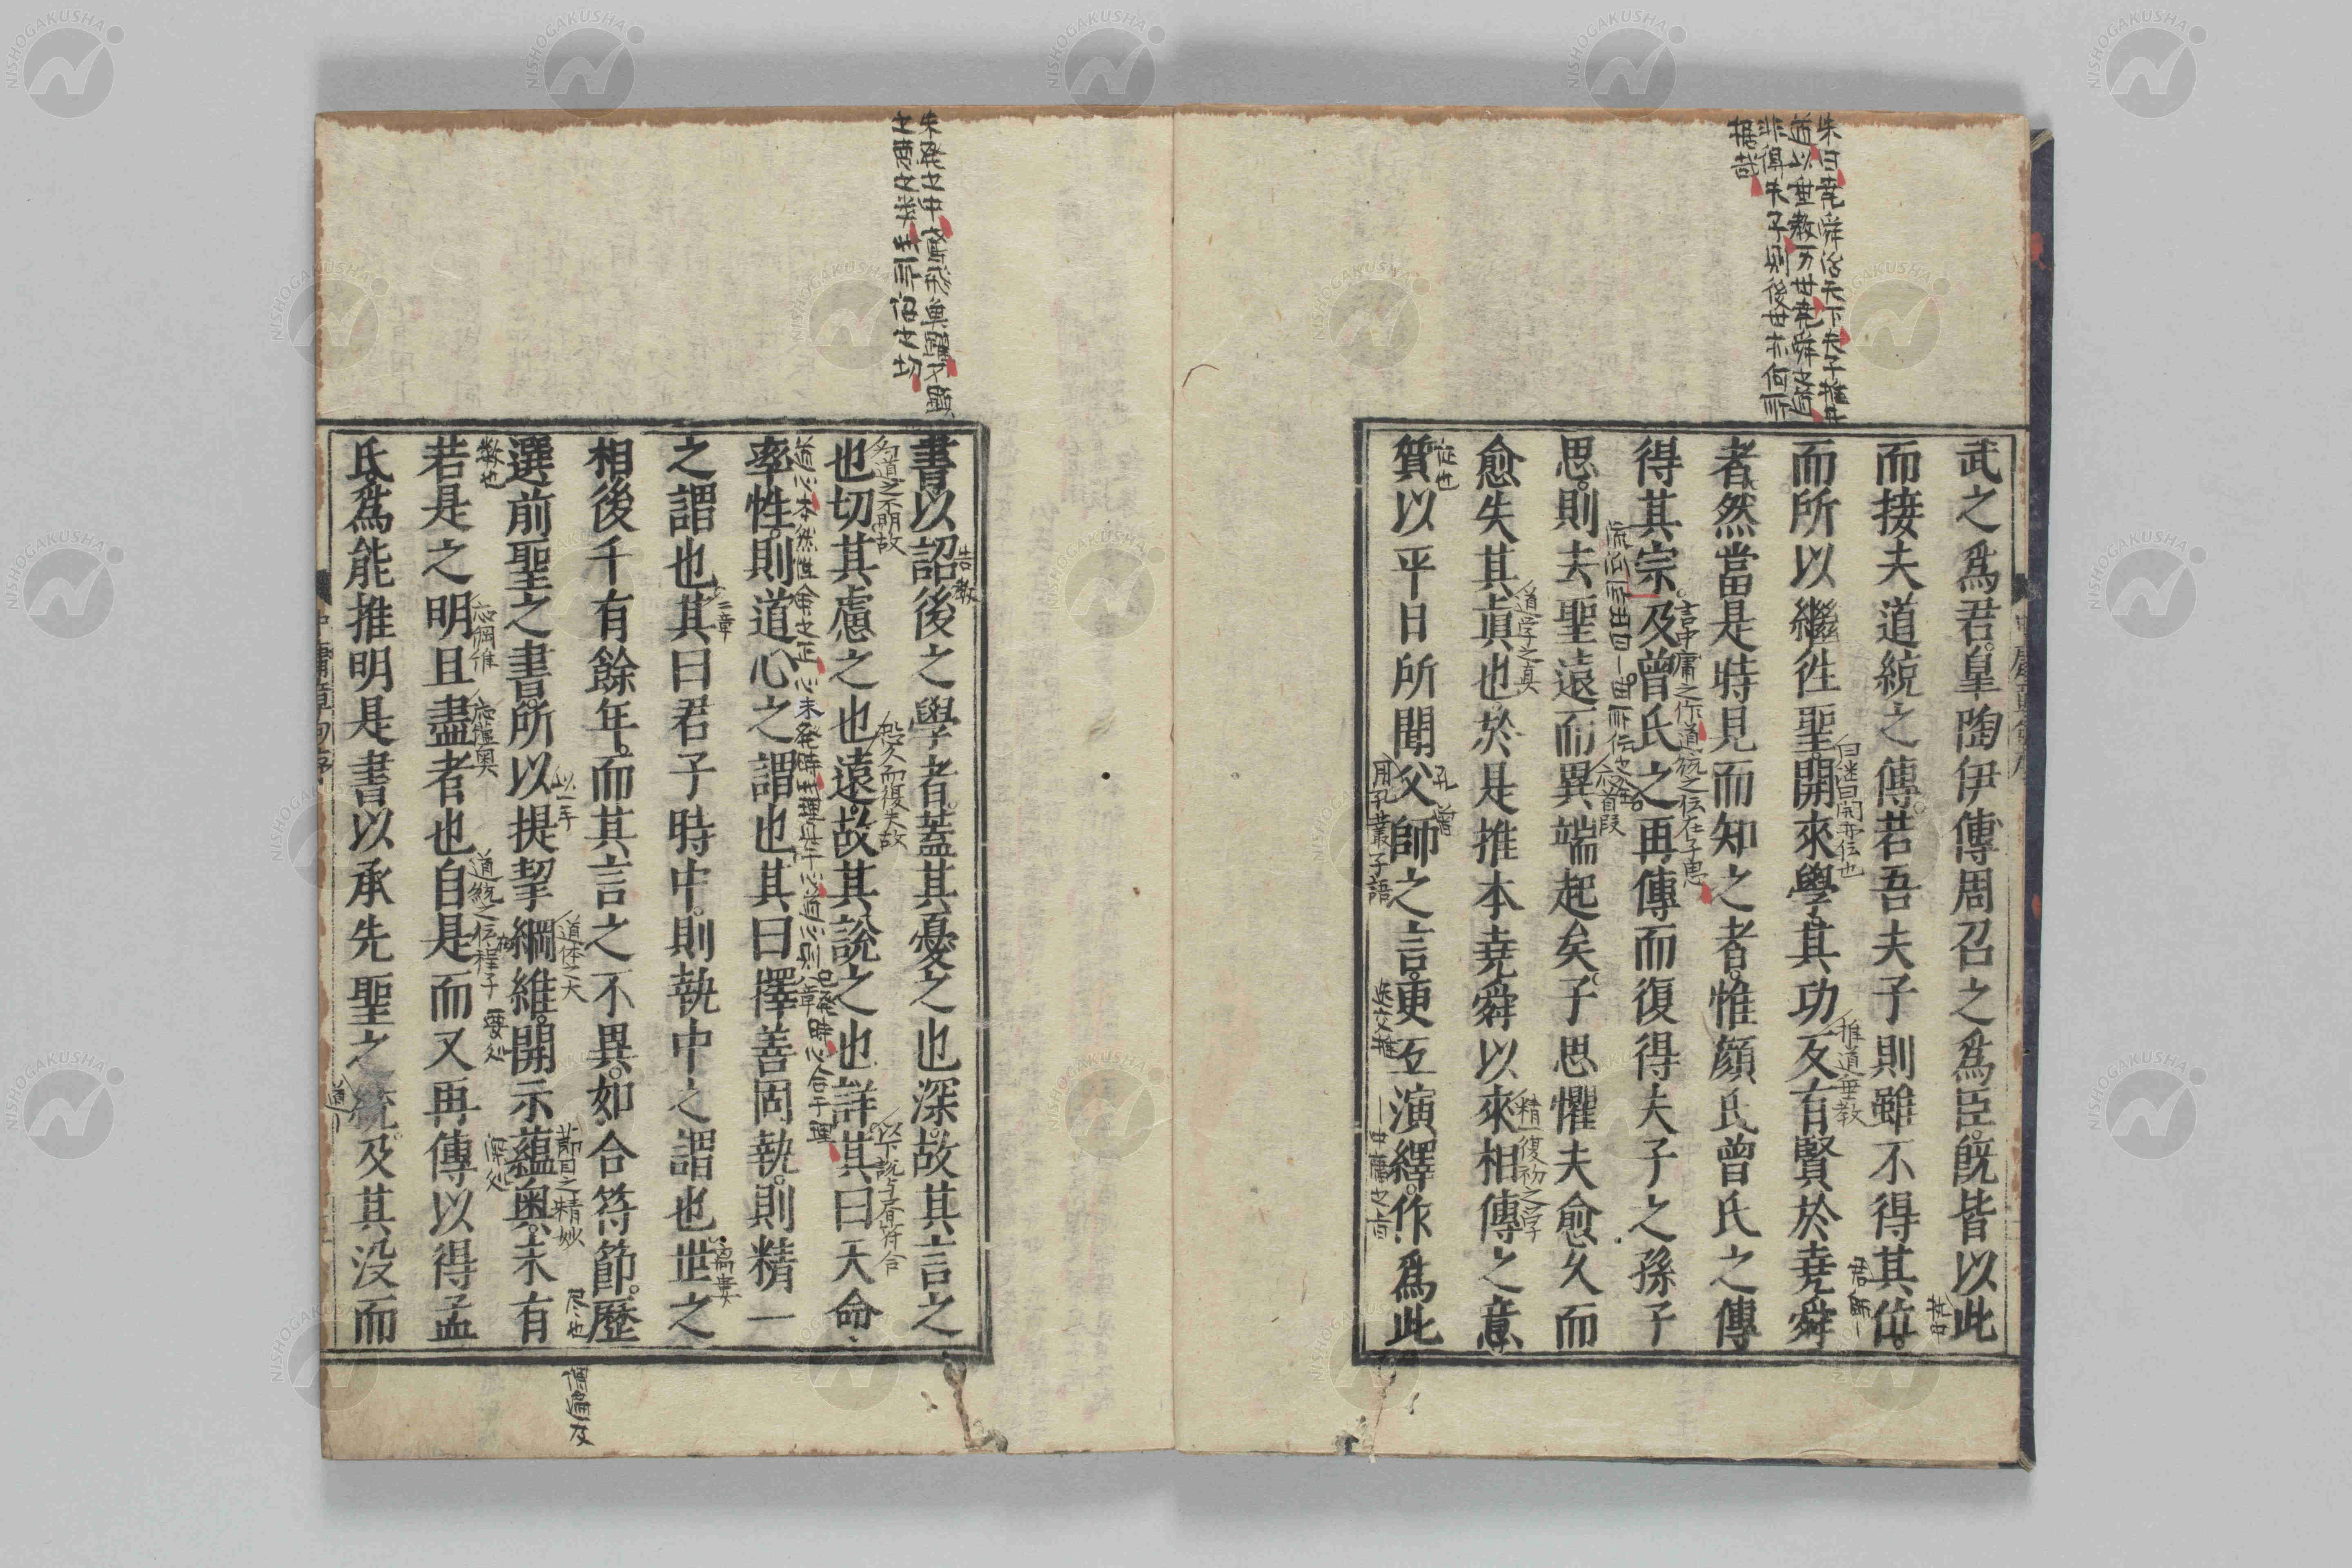 武之爲君皐陶伊傅周召之爲臣既皆以此
而接夫道統之傳若吾夫子則雖不得其位
而所以繼徃聖開來學其功反有賢於堯舜
者然當是時見而知之者惟顔氏曾氏之傳
得其宗及曾氏之再傳而復得夫子之孫子
思則去聖遠而異端起矣子思懼夫愈久而
愈失其眞也於是推本堯舜以來相傳之意
質以平日所聞父師之言更互演繹作爲此
書以詔後之學者蓋其憂之也深故其言之
也切其慮之也遠故其說之也詳其曰天命
率性則道心之謂也其曰擇善固執則精一
之謂也其曰君子時中則執中之謂也世之
相後千有餘年而其言之不異如合符節歷
選前聖之書所以提挈綱維開示蘊奧未有
若是之明且盡者也自是而又再傳以得孟
氏爲能推明是書以承先聖之統及其没而
朱曰堯舜治天下夫子推其
道以垂教万世堯舜之道
非得夫子則後世亦何所
据哉
告教
從也
孔 曾
道学之真
言中庸之作道統之伝在子思
推道垂教
用孔叢子語
名道之不明故
以下説与虞符合
道体之大
節目之精妙
尽也
數也
要処
深処
中庸章句序
NISHOGAKUSHA